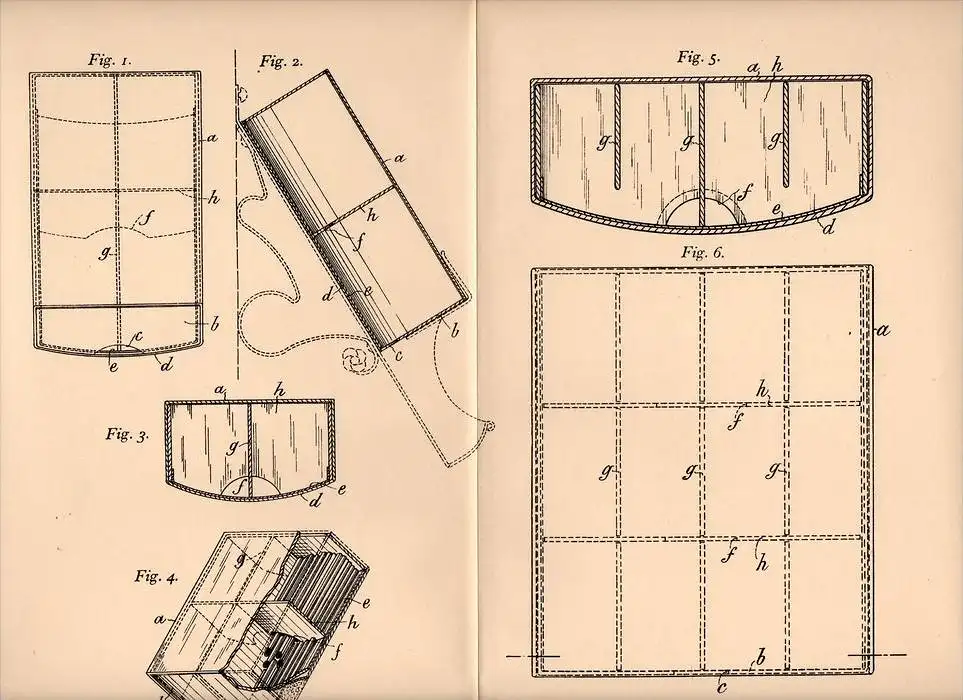 Fig. 1.
a
h
f
g
b
c
e
d
Fig. 2.
a
h
f
d
e
b
c
Fig. 3.
a
h
g
f
e
d
Fig. 4.
g
a
e
h
f
Fig. 5.
a
h
g
g
g
f
e
d
Fig. 6.
a
h
f
g
g
g
f
h
b
c